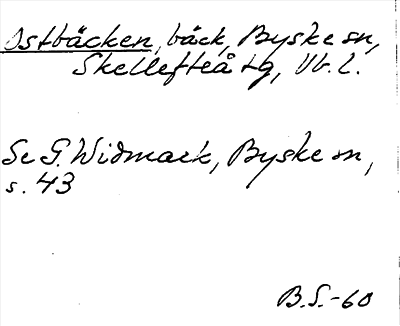 Ostbäcken, bäck, Byske sn,
Skellefteå tg, Vb. l.
Se G. Widmark, Byske sn,
s. 43
B.S.-60